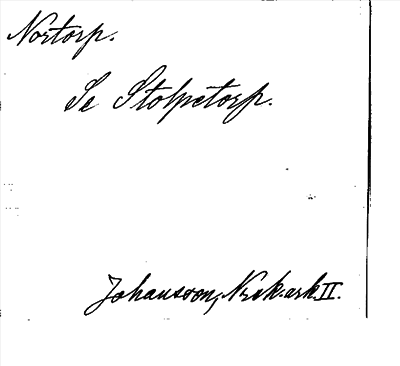 Nortorp.
Se Stolpetorp.
Johansson, Nsk. ark. II.